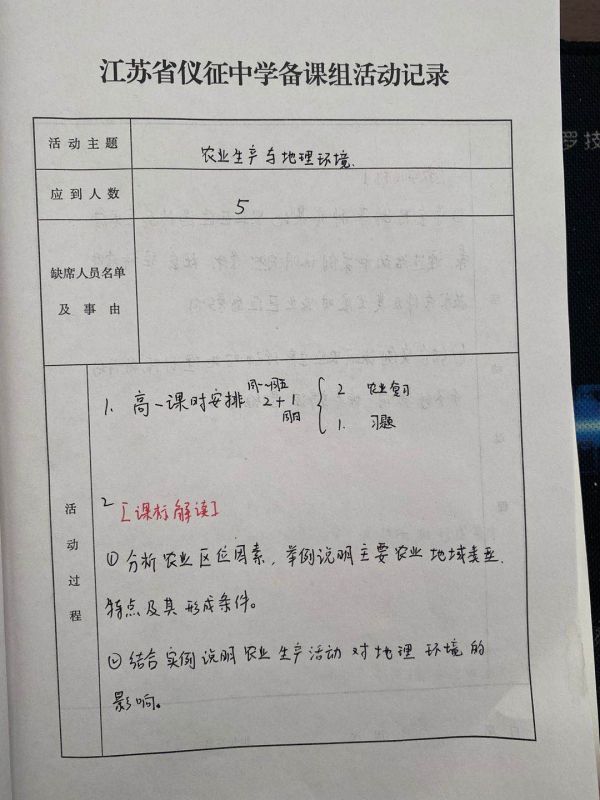 江苏省仪征中学备课组活动记录
活动主题
农业生产与地理环境.
应到人数
5
缺席人员名单
及事由
活动过程
1. 高一课时安排 2+1 { 2. 农业复习
周一~周五
周日
1. 习题
2 [课标解读]
① 分析农业区位因素，举例说明主要农业地域类型.
特点及其形成条件。
② 结合实例说明农业生产活动对地理环境的
影响。
罗技